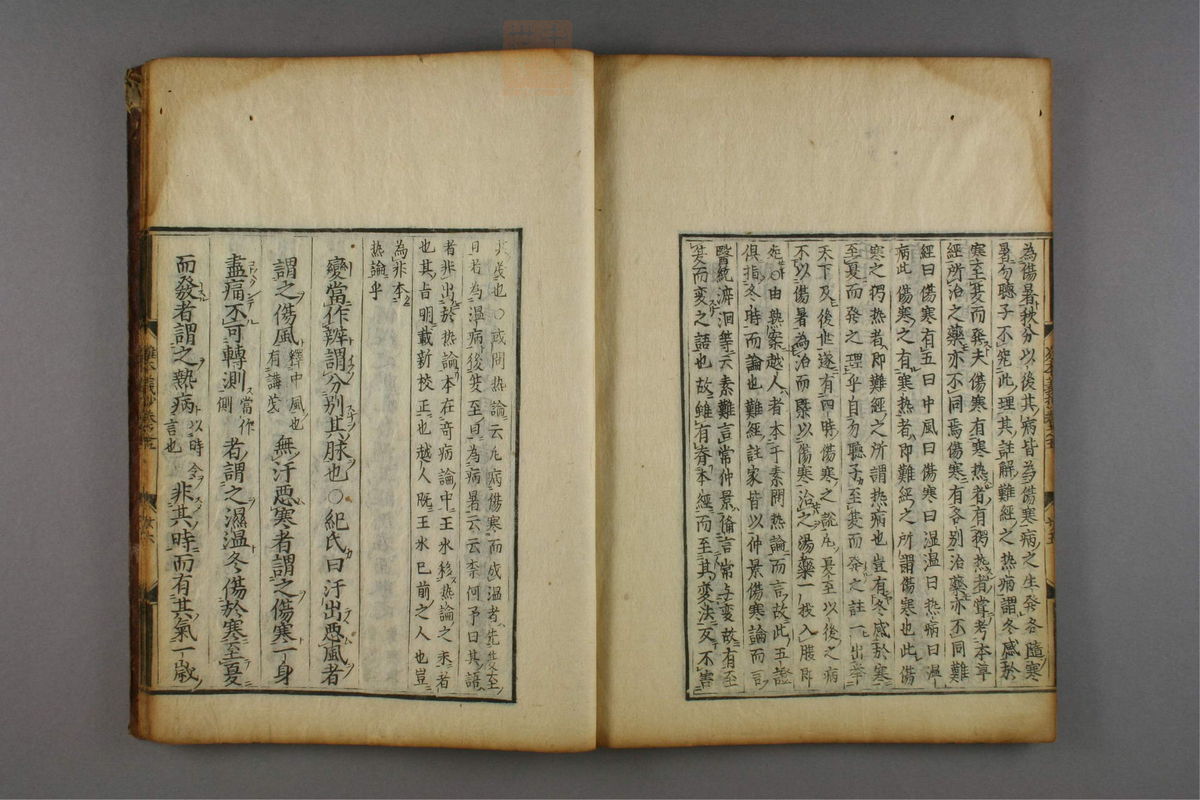 為傷暑秋分以後其病皆為傷寒病之生發各隨寒
暑勿聽子不究此理其註解難經之熱病謂冬感於
寒至夏而発夫傷寒有寒熱者有
經所治之藥亦不同焉傷寒有各別治藥亦不同難
經曰傷寒有五曰中風曰傷寒曰湿温曰热病曰温
病此傷寒之有寒热者即難經之所謂傷寒也此傷
寒之热者即難經之所謂热病也豈有冬感於寒
至夏而発之理乎自勿聽子至夏而発之註一出举
天下及後世遂有四時傷寒之説凡夏至以後之病
不以傷暑為治而槩以傷寒治之湯藥一我入腹即
死〇由熱案越人者本于素問热論而言故此五證
俱指冬時而論也難經註家皆以仲景傷寒論而言
醫統泝洄等云素難言常仲景備言常与変故有至
夏而変之語也故雖有脊本經而至其変法又不害
也〇或問热論云凡病傷寒而成温者先夏至
日者為温病後夏至日為病暑云云柰何予曰其語
者非出於热論本在奇病論中王氷移热論之末者
也其旨明載新校正也越人既王氷已前之人也豈
為非本
热論乎
變當作辨謂分別其脉也〇紀氏曰汗出惡風者
謂之傷風釋中風也有講莂無汗惡寒者謂之傷寒一身
盡痛不可轉測當作側者謂之濕温冬傷於寒至夏
而發者謂之熱病以時言也非其時而有其氣一歲